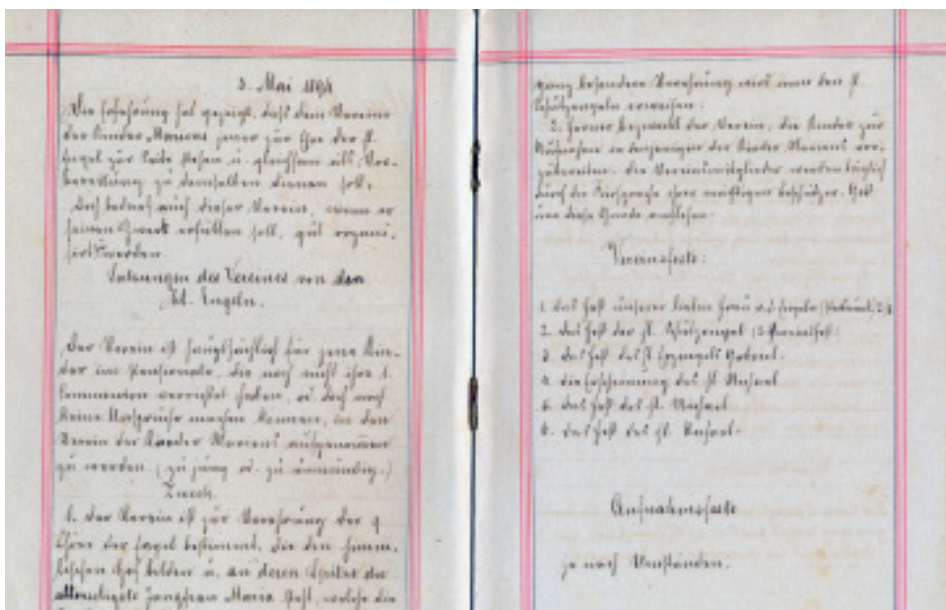 3. Mai 1894
Die Erfahrung hat gezeigt, daß dem Vereine
der Kinder Mariens jener zur Ehre der hl.
Engel zur Seite stehen u. gleichsam als Vor-
bereitung zu demselben dienen soll.
Doch bedarf auch dieser Verein, wenn er
seinen Zweck erfüllen soll, gut organi-
sirt werden.
Satzungen des Vereines von den
hl. Engeln.
Der Verein ist hauptsächlich für jene Kin-
der im Pensionate, die noch nicht ihre 1.
Communion verrichtet haben, od. doch noch
keine Ansprüche machen können, in den
Verein der Kinder Mariens aufgenommen
zu werden. (zu jung od. zu unmündig.)
Zweck.
1. Der Verein ist zur Verehrung der 9
Chöre der Engel bestimmt, die den himm-
lischen Hof bilden u. an deren Spitze die
allerseligste Jungfrau Maria steht, welche die
ganz besondere Verehrung wird man den hl.
Schutzengeln erweisen.
2. Ferner bezweckt der Verein, die Kinder zur
Aufnahme in denjenigen der Kinder Mariens vor-
zubereiten. Die Vereinsmitglieder werden täglich
durch die Fürsprache ihrer mächtigen Beschützer, Gott
um diese Gnade anflehen.
Vereinsfeste:
1. das Fest unserer lieben Frau v. d. Engeln
2. das Fest der hl. Schutzengel
3. das Fest des hl. Erzengels Gabriel.
4. die Erscheinung des hl. Michael
5. das Fest des hl. Michael
6. das Fest des hl. Raphael.
Aufnahmsfeste
je nach Umständen.